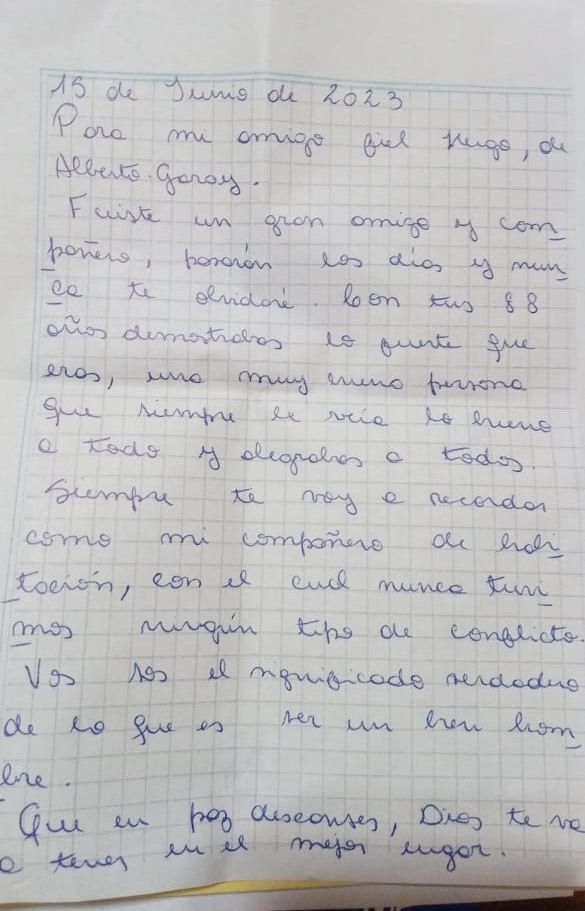 15 de Junio de 2023
Para mi amigo fiel Hugo, de
Alberto Garay.
Fuiste un gran amigo y com_
pañero, pasarán los días y nun_
ca te olvidaré. Con tus 88
años demostrabas lo fuerte que
eras, una muy buena persona
que siempre le veía lo bueno
a todo y alegrabas a todos.
Siempre te voy a recordar
como mi compañero de habi_
tación, con el cual nunca tuvi_
mos ningún tipo de conflicto.
Vos sos el significado verdadero
de lo que es ser un buen hom_
bre.
Que en paz descanses, Dios te va
a tener en el mejor lugar.